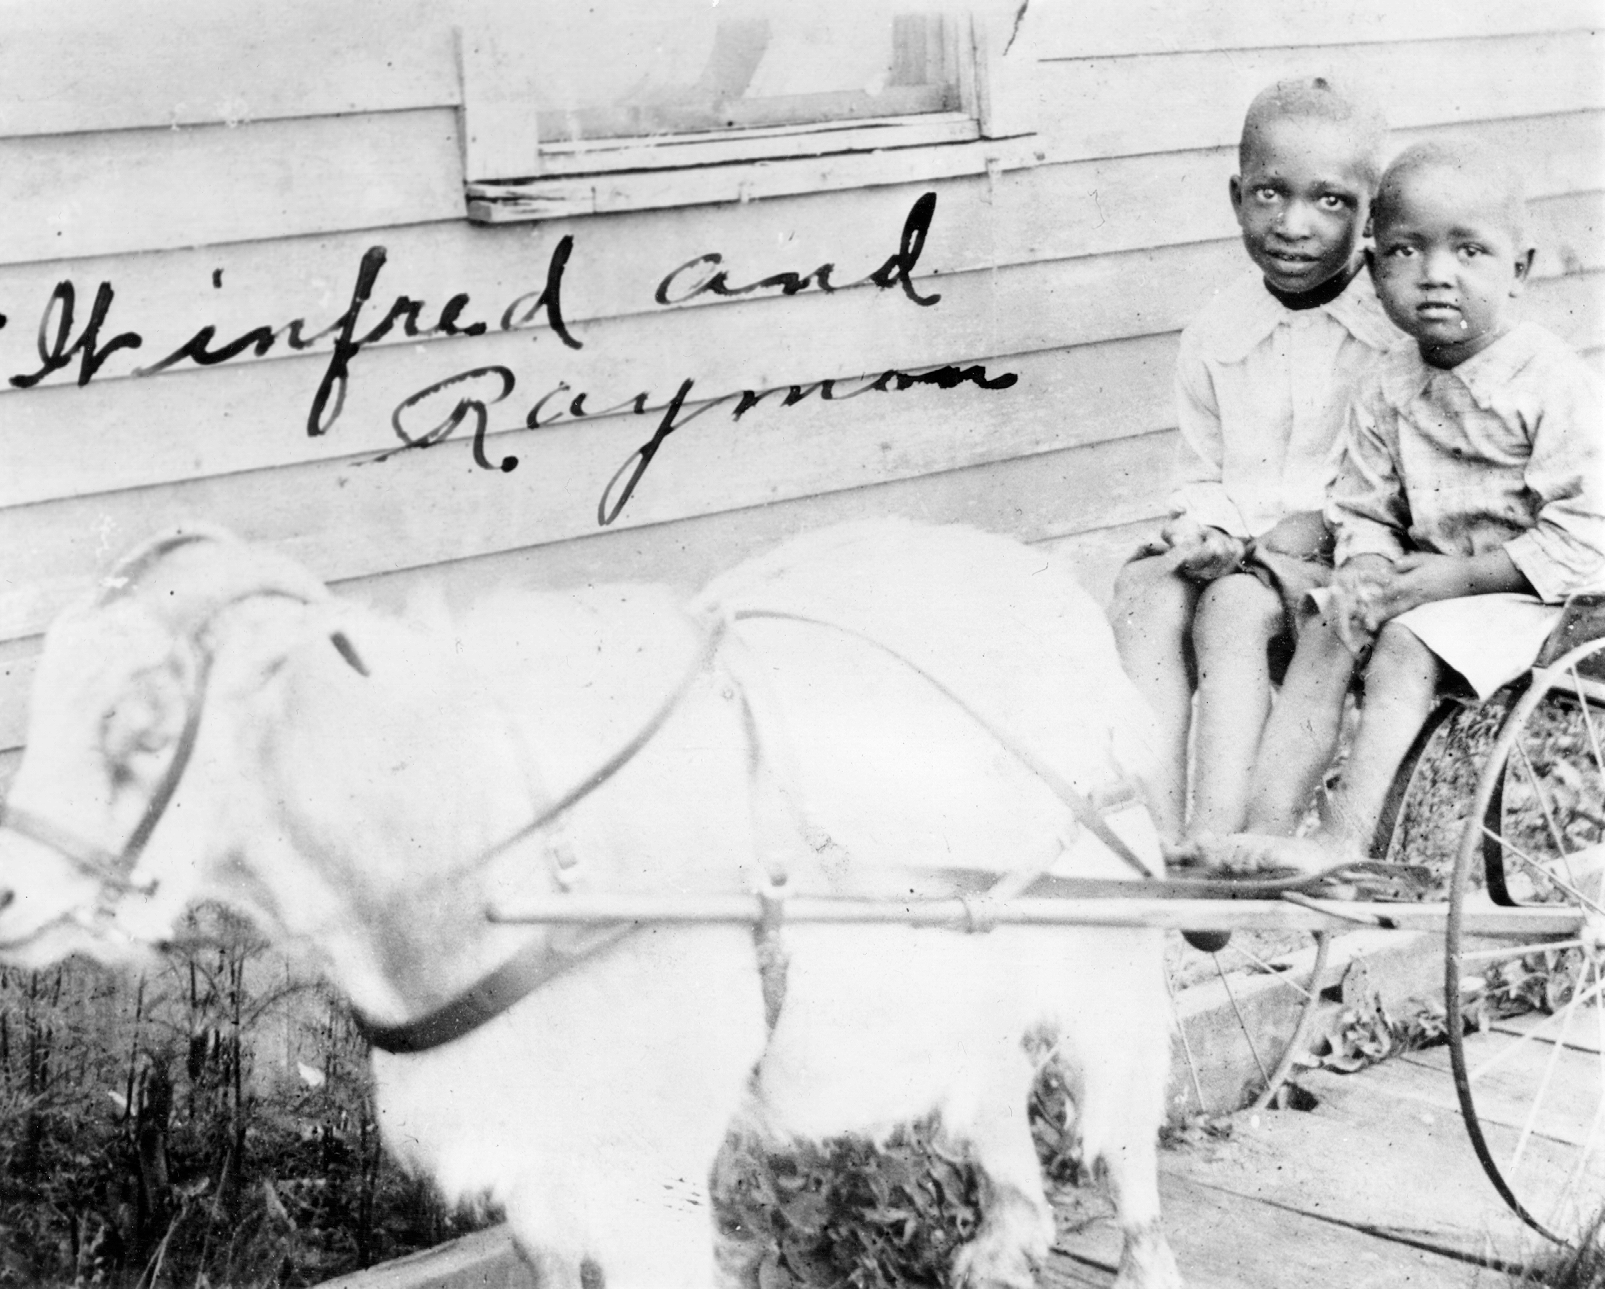 Winfred and
Raymon